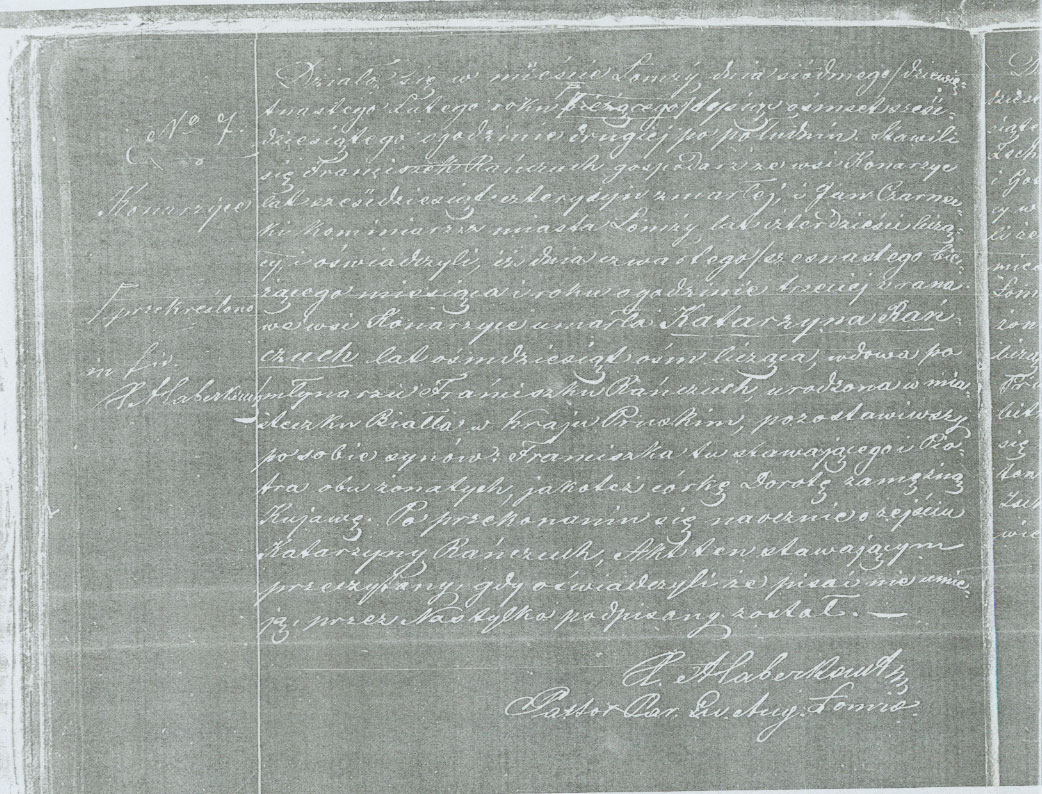 Działo się w mieście Łomży dnia siódmego/dziewię-
tnastego Lutego roku bieżącego/tysiąc ośmset sześć-
No 7.
dziesiątego o godzinie drugiej po południu. Stawili
się Franciszek Rańczuch gospodarz ze wsi Konarzyce
Konarzyce
lat sześćdziesiąt cztery syn zmarłej, i Jan Czarnec-
ki kominiarz z miasta Łomży lat czterdzieści liczą-
cy, i oświadczyli, iż dnia czwartego/szesnastego bie-
żącego miesiąca i roku o godzinie trzeciej z rana
przekreślono
we wsi Konarzyce umarła Katarzyna Rań-
czuch lat ośmdziesiąt ośm licząca, wdowa po
młynarzu Franciszku Rańczuch, urodzona w mia-
steczku Bialla w Kraju Pruskim, pozostawiwszy
po sobie synów: Franciszka tu stawającego i Pio-
tra obu żonatych, jakoteż córkę Dorotę zamężną
Kujawę. Po przekonaniu się naocznie o zejściu
Katarzyny Rańczuch, Akt ten stawającym
przeczytany, gdy oświadczyli że pisać nie umie-
ją, przez Nas tylko podpisany został. —
Pastor Par. Ew. Aug. Łomża